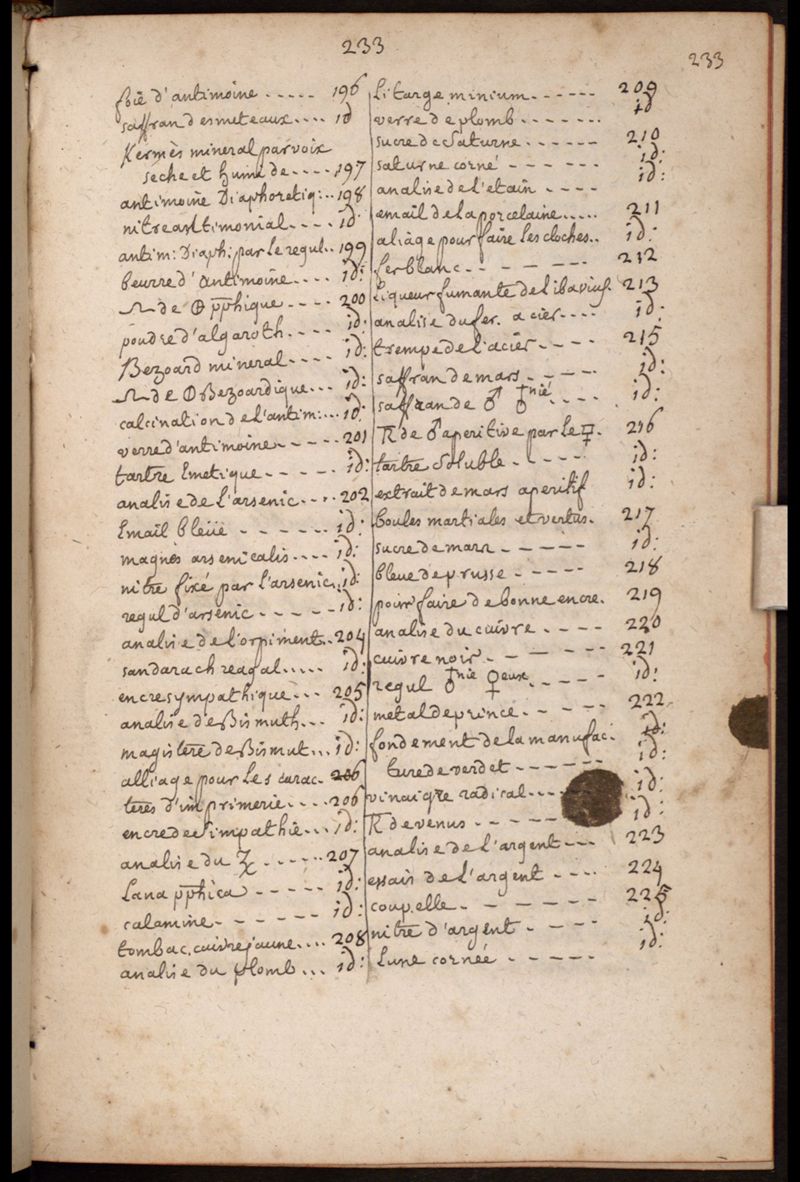 233
233
foïe d'antimoine ..... 196
saffran desmeteaux.... id
Kermès mineral par voix
seche et humide .... 197
antimoine Diaphoretiq:.. 198
nitre antimonial .... id:
antim: Diaph: par le regul.. 199
beurre d'antimoine .... id:
de ppphique .... 200
poudre d'algaroth .... id:
Bezoard mineral .... id:
de Bezoardique... id:
calcination de l'antim:... id:
verre d'antimoine ..... 201
tartre Emetique ..... id:
analise de l'arsenic .... 202
Email bleüe ...... id:
magnès arsenicalis .... id:
nitre fixé par l'arsenic. id:
regul d'arsenic ..... id:
analise de l'orpiment.. 204
sandarach reagal..... id:
encre sympathique ... 205
analise de Bismuth... id:
magistere de Bismut... id:
alliage pour les carac- 206
teres d'imprimerie.... 206
encre de simpathie... id:
analise du ...... 207
Lana pphica ..... id:
calamine ...... id:
tombac, cuivre jaune.... 208
analise du plomb ... id:
Litarge minium ...... 209
verre de plomb ....... id
sucre de Saturne ...... 210
saturne corné ...... id:
analise de l'etain .... id:
email de la porcelaine..... 211
aliage pour faire les cloches.. id:
fer blanc ...... 212
Liqueur fumante de libavius. 213
analise du fer. acier.... id:
trempe de l'acier .... 215
saffran de mars ..... id:
saffran de ♂ ♁nié .... id:
de ♂ aperitive par le . 216
tartre soluble ..... id:
extrait de mars aperitif id:
boules martiales et vertus. 217
sucre de mars ..... id:
bleue de prusse ..... 218
pour faire de bonne encre. 219
analise du cuivre .... 220
cuivre noir ...... 221
regul ♁nie ♀eux ..... id:
metal de prince ..... 222
fondement de la manufac- id:
ture de verdet ...... id:
vinaigre radical ... id:
de venus ..... id:
analise de l'argent ... 223
essais de l'argent .... 224
coupelle ...... 225
nitre d'argent .... id:
Lune cornéé ..... id: